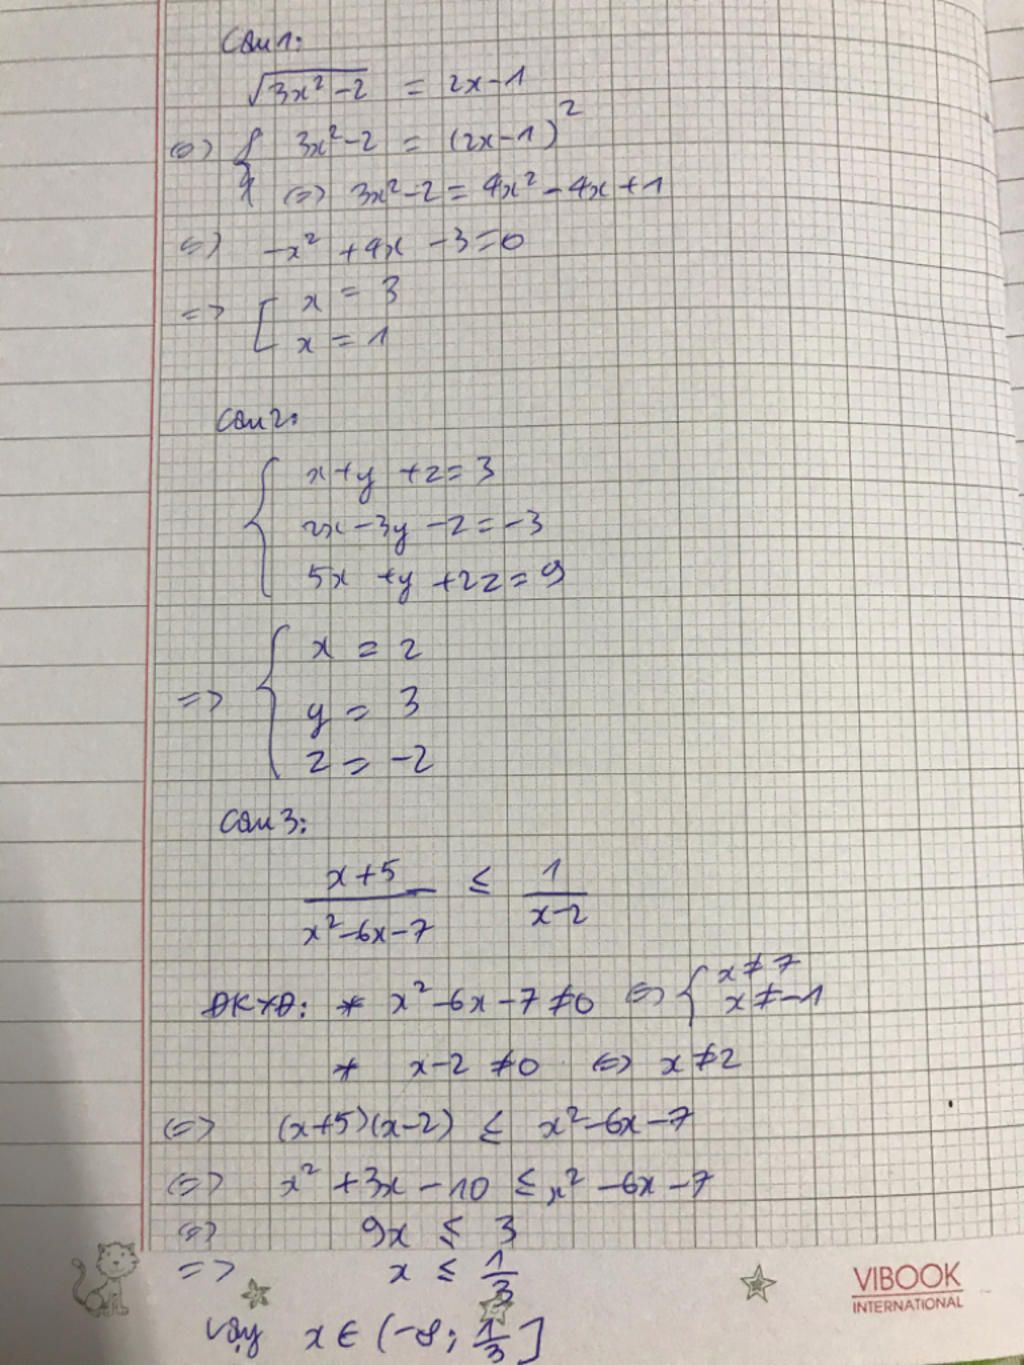 Câu 1:
√(3x² - 2) = 2x - 1
⇔ { 3x² - 2 = (2x - 1)²
⇔ 3x² - 2 = 4x² - 4x + 1
⇔ -x² + 4x - 3 = 0
=> [ x = 3
x = 1
Câu 2:
{ x + y + z = 3
2x - 3y - z = -3
5x + y + 2z = 9
=> { x = 2
y = 3
z = -2
Câu 3:
(x + 5)/(x² - 6x - 7) ≤ 1/(x - 2)
ĐKXĐ: * x² - 6x - 7 ≠ 0 ⇔ { x ≠ 7
x ≠ -1
* x - 2 ≠ 0 ⇔ x ≠ 2
⇔ (x + 5)(x - 2) ≤ x² - 6x - 7
⇔ x² + 3x - 10 ≤ x² - 6x - 7
⇔ 9x ≤ 3
=> x ≤ 1/3
Vậy x ∈ (-∞; 1/3]
VIBOOK
INTERNATIONAL